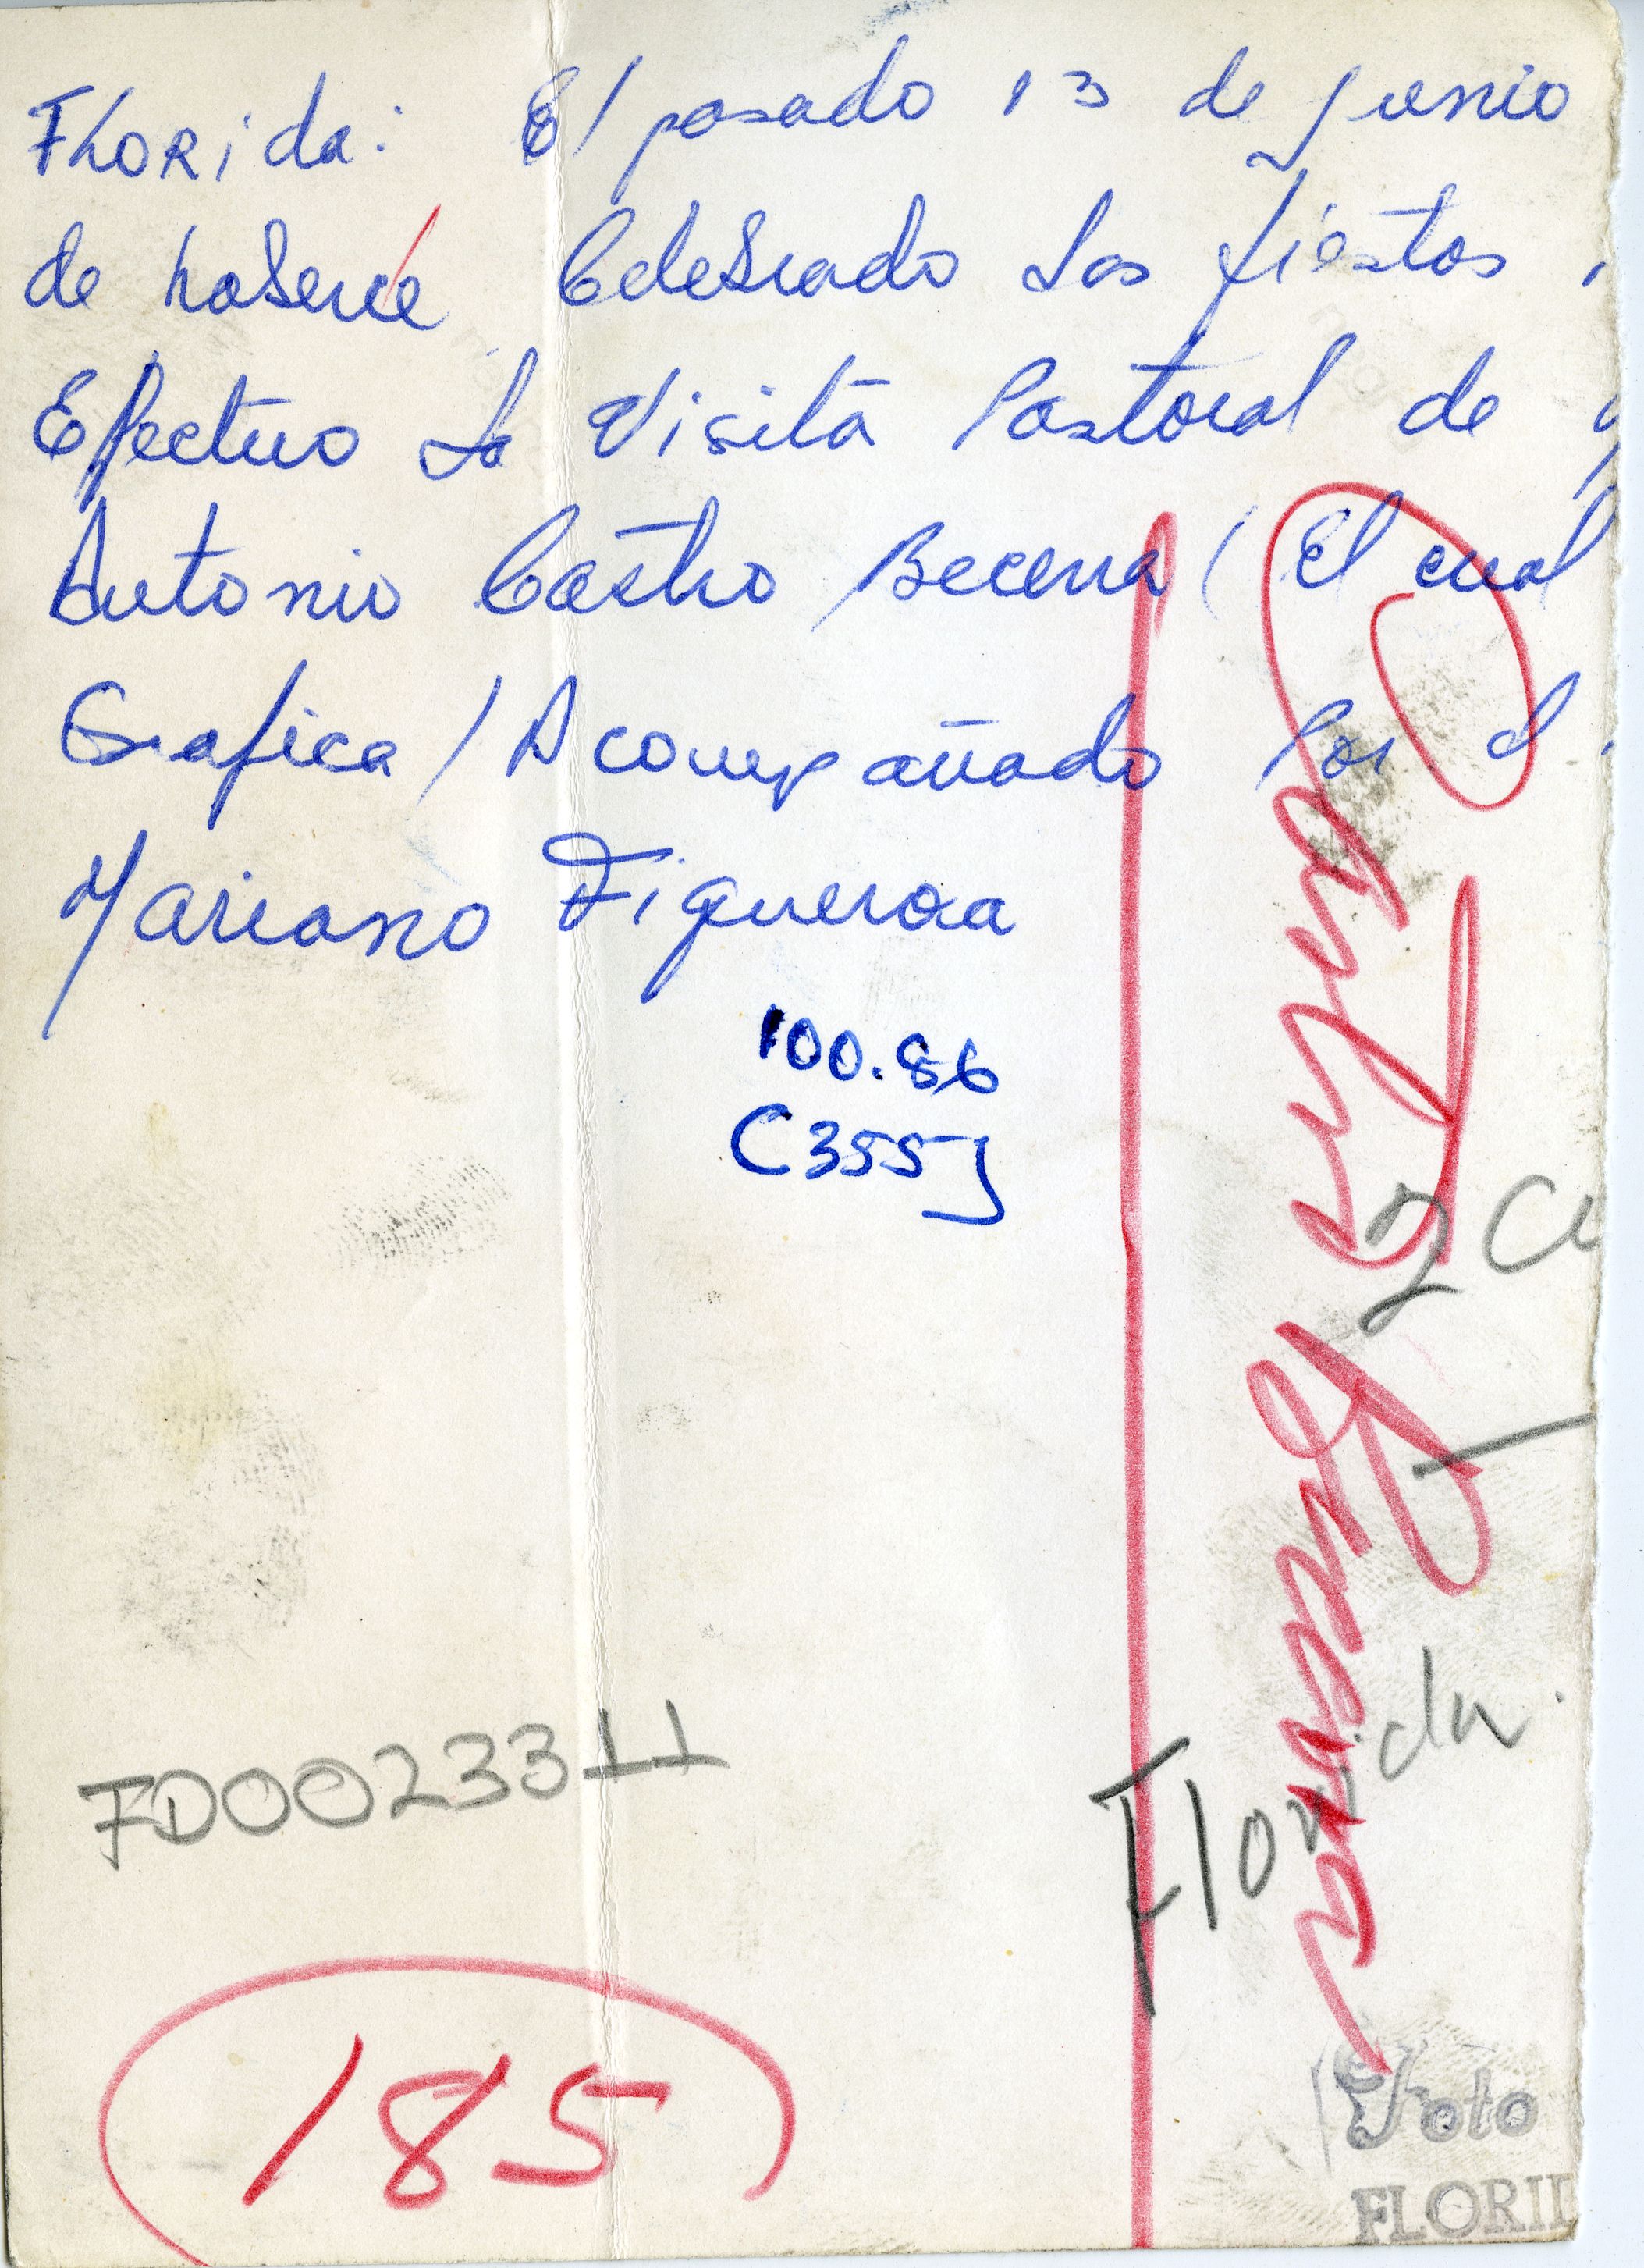 Florida: El pasado 13 de junio
de haberse Celebrado las fiestas
Efectuo la Visita Pastoral de
Antonio Castro Becerra ( El cual
Grafica / Acompañado Por el
Mariano Figueroa
100.86
C355j
2 Cu
Castro
Becerra
Florida.
FD0023311
185
Foto
FLORID